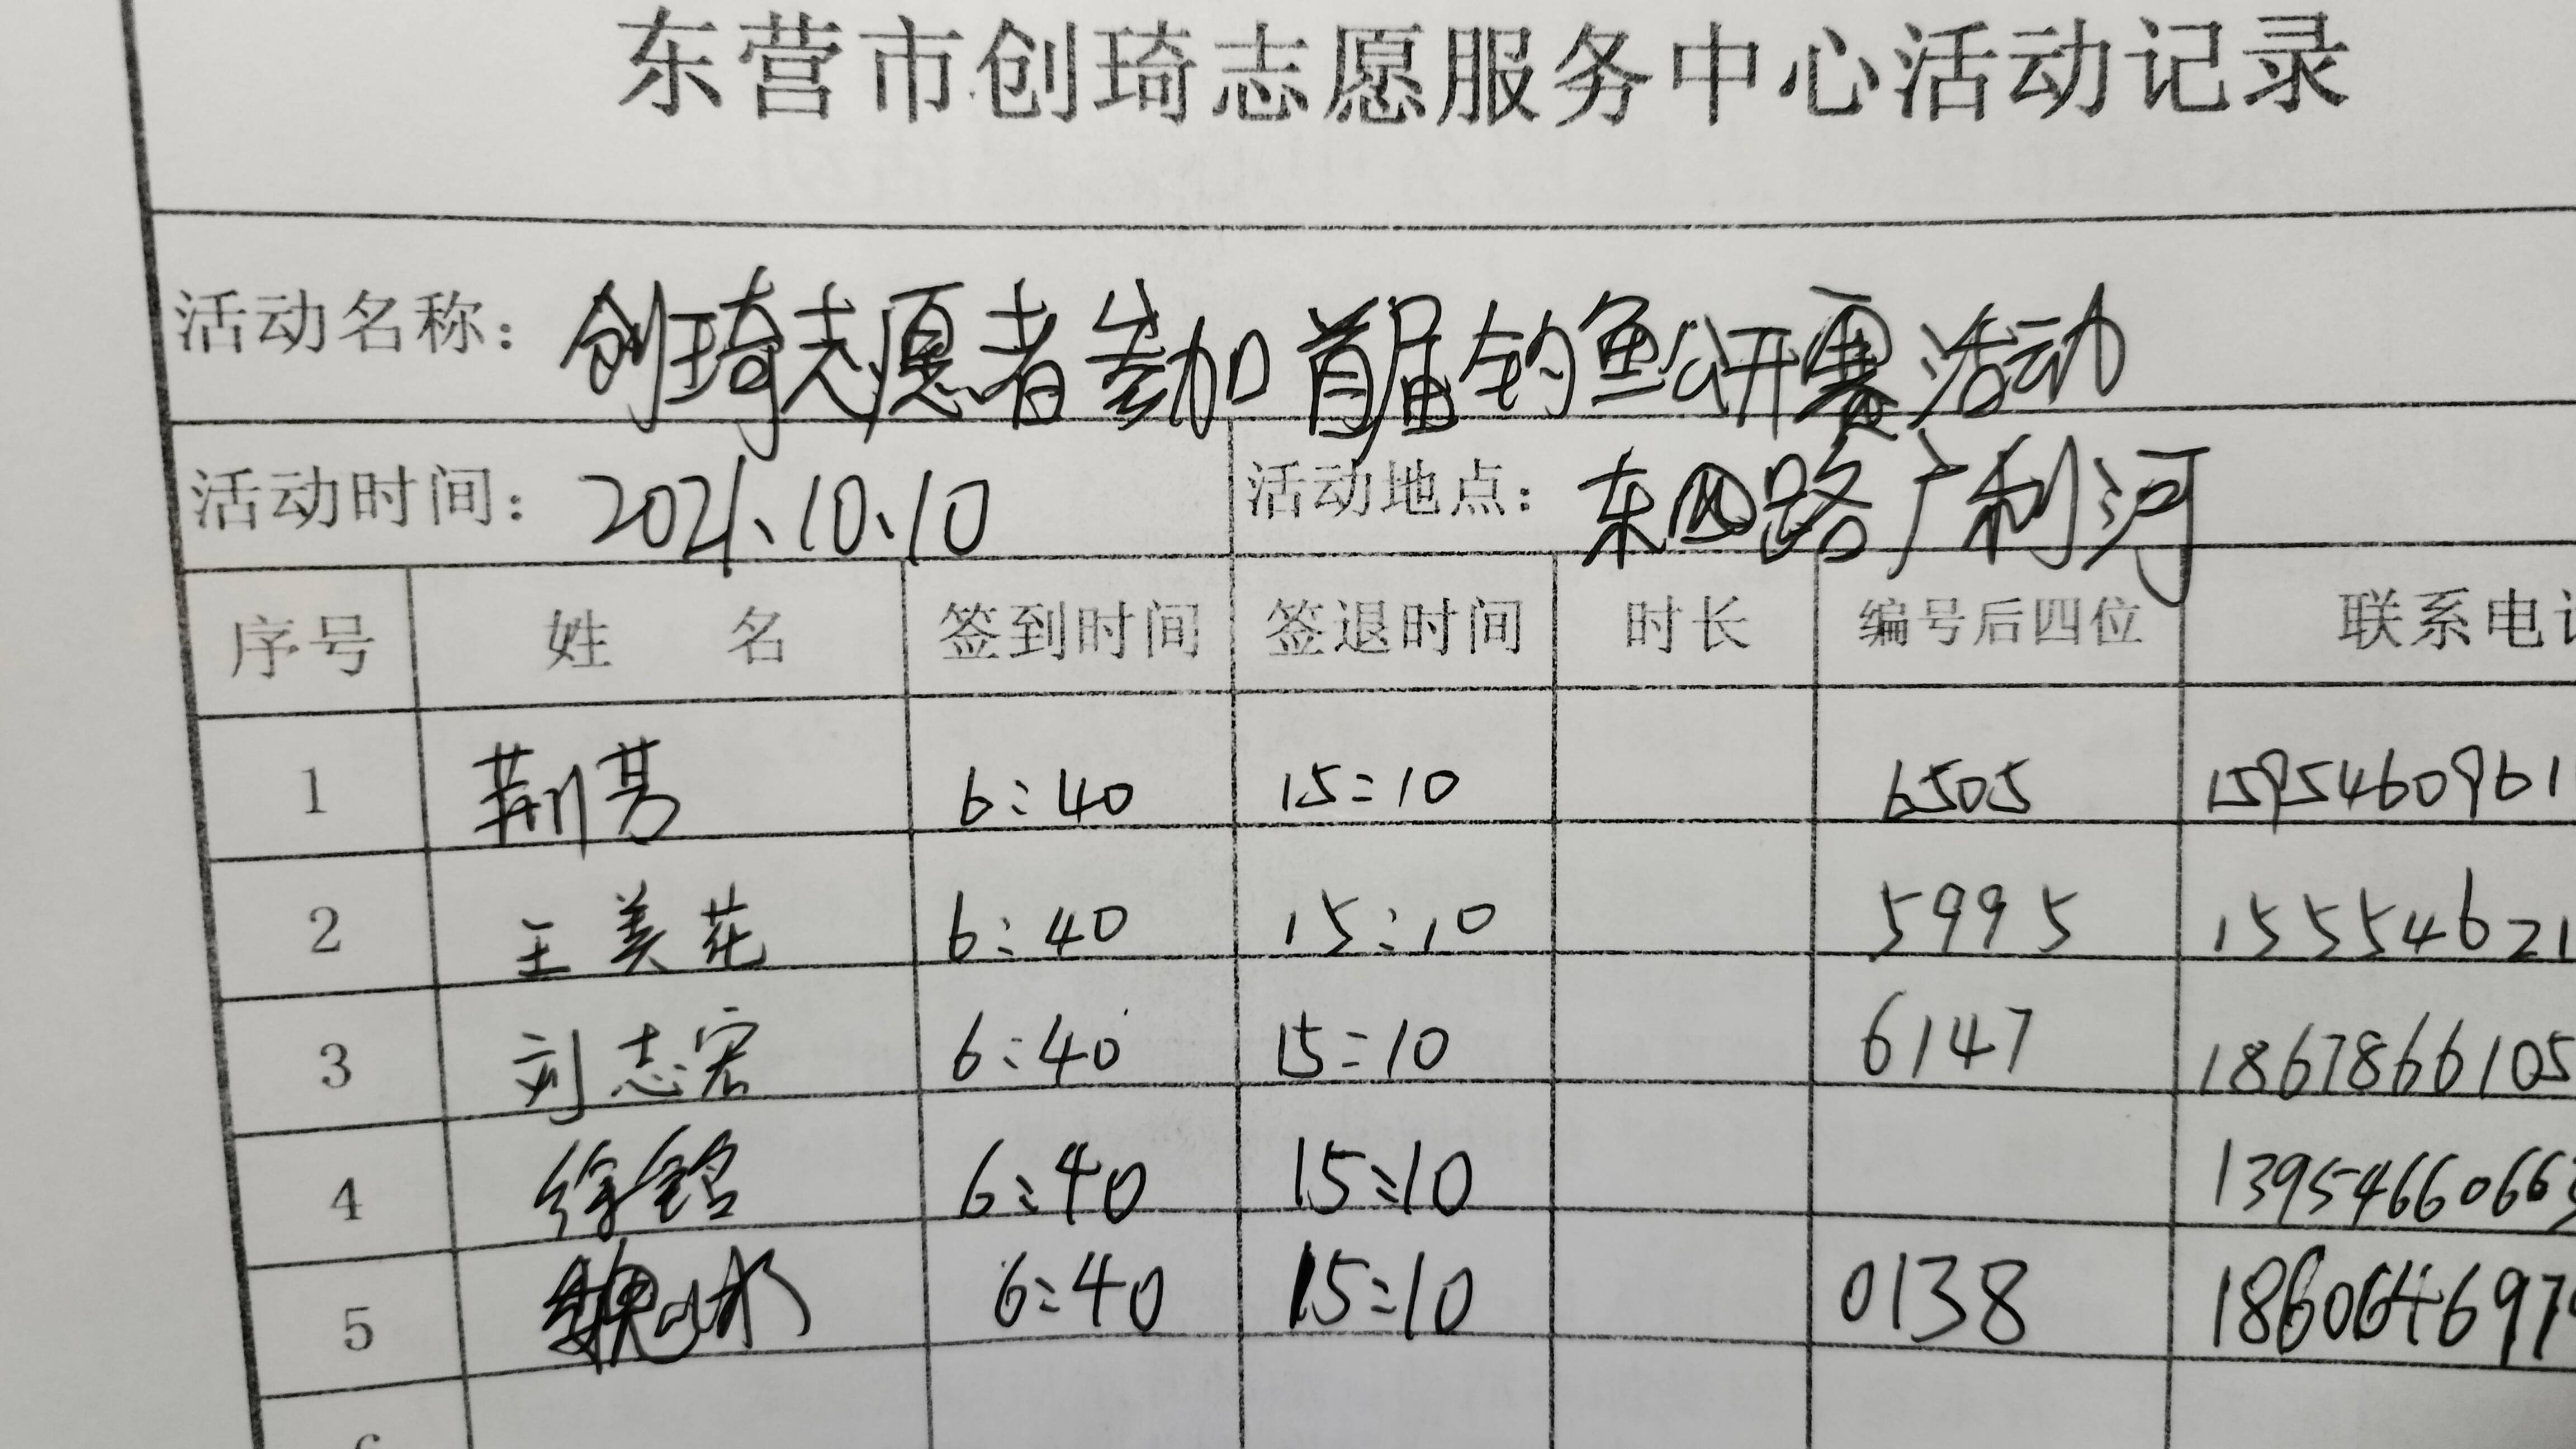 东营市创琦志愿服务中心活动记录
活动名称： 创琦志愿者参加首届钓鱼公开赛活动
活动时间： 2021、10、10 活动地点： 东四路广利河
序号 姓 名 签到时间 签退时间 时长 编号后四位 联系电
1 荆芳 6:40 15:10 6505 1595460961
2 王美花 6:40 15:10 5995 15554621
3 刘志宏 6:40 15:10 6147 1867866105
4 徐铭 6:40 15:10 1395466066
5 魏 6:40 15:10 0138 186064697